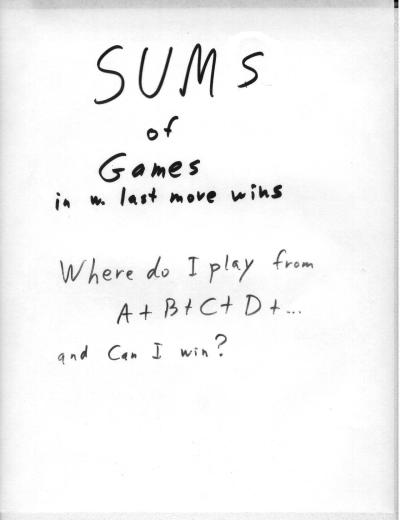 SUMS
of
Games
in w. last move wins
Where do I play from
A + B + C + D + ...
and Can I win?